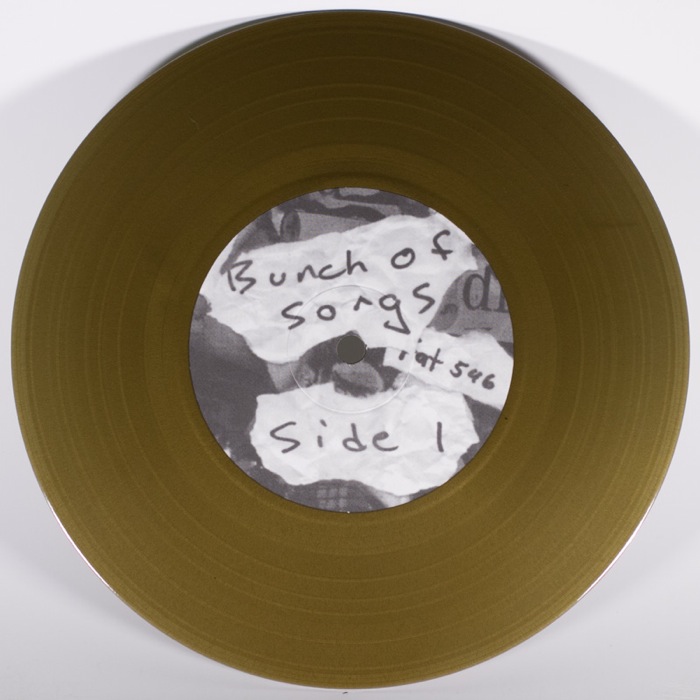 Bunch of
songs
riot 546
Side 1